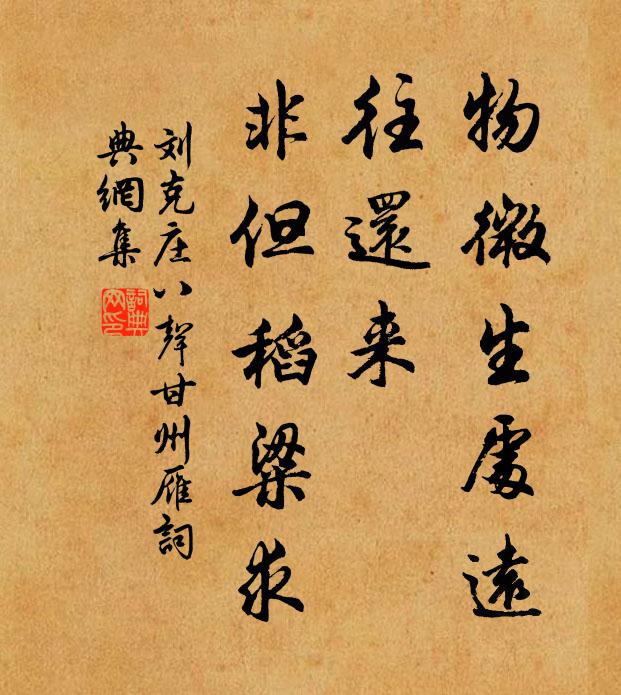 物微生處遠
往還来
非但稻粱求
刘克庄八聲甘州雁詞
典網集
詞典網印